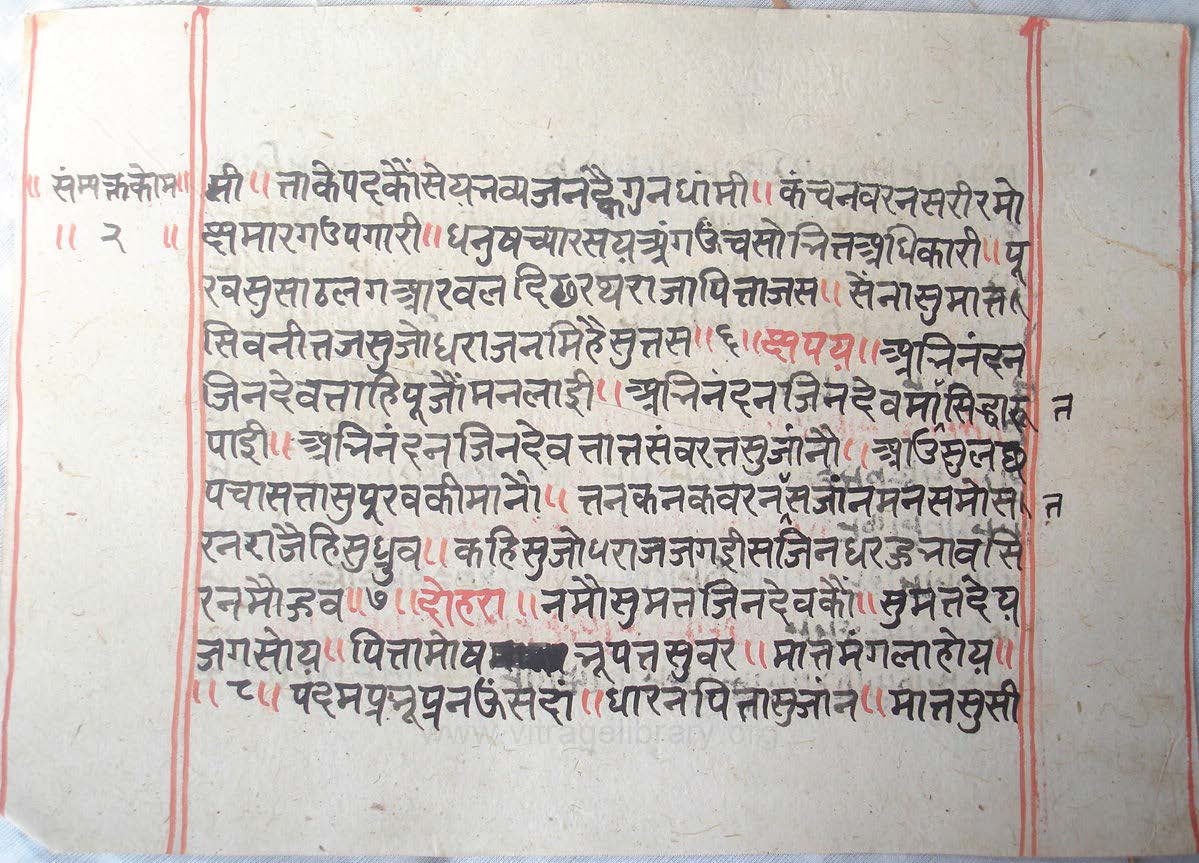 ॥ संम्यक्तकोम॥
॥ २ ॥
मी ॥ ताकेपदकौंसेयनव्यजनह्वैगुनधांमी ॥ कंचनवरनसरीरमो
क्षमारगउपगारी ॥ धनुषच्यारसयअंगउंचसोभितअधिकारी ॥ पू
रवसुसाठलगआरवलदिछरथराजापिताजस ॥ सेंनासुमात
सिवनीतजसुजोधराजनमिहैसुतस ॥ ६ ॥ छपय ॥ अभिनंदन
जिनदेवताहिपूजौंमनलाई ॥ अभिनंदनजिनदेवमांसिद्धार त
पाई ॥ अभिनंदनजिनदेवतातसंवरतसुजांनौ ॥ आउसुलछ
पचासतासुपूरवकीमानौ ॥ तनकनकवरनसजांनमनसमोस त
रनराजैहिसुध्रुव ॥ कहिसुजोधराजजगईसजिनधरऊभावसि
रनमौऊव ॥ ७ ॥ दोहरा ॥ नमौसुमतजिनदेवकौं ॥ सुमतदेय
जगसोय ॥ पितामोष नूपतसुवर ॥ मातमंगलाहोय ॥
॥ ८ ॥ पदमप्रभूप्रनऊंसदां ॥ धारनपितासुजांन ॥ मातसुसी
www.vitragelibrary.org